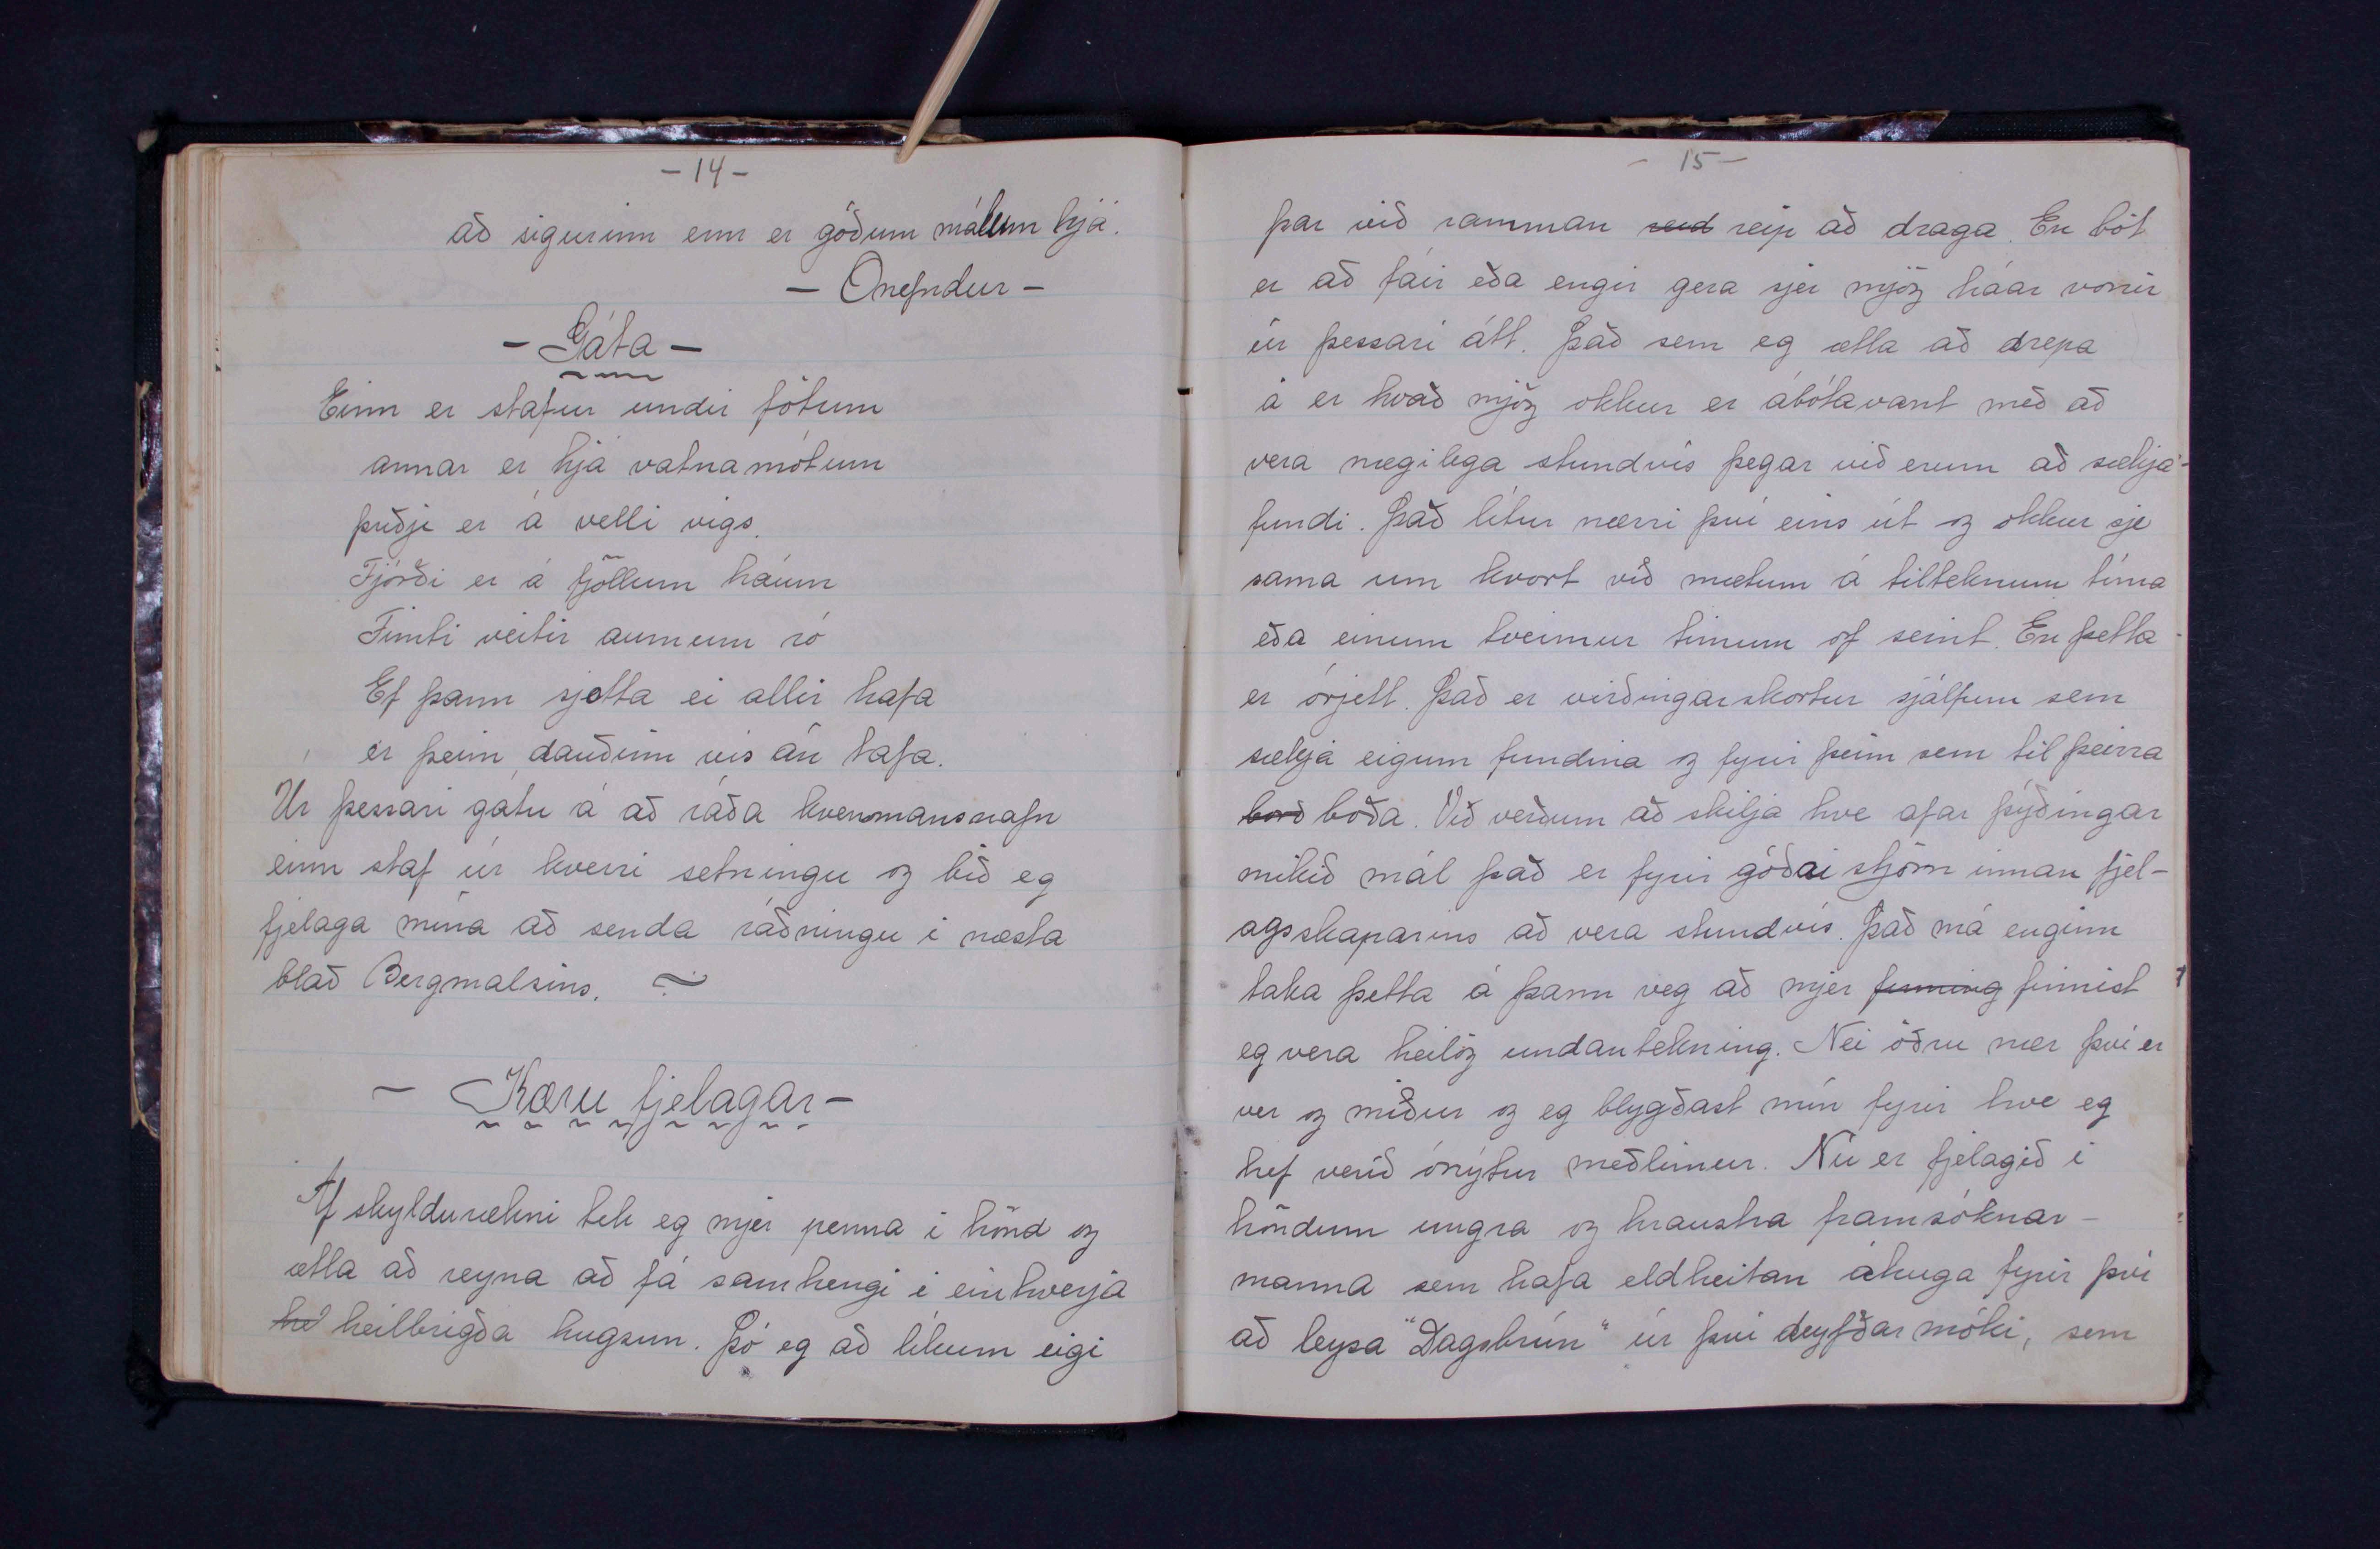 -14-
að sigurinn enn er góðum málum hjá.
- Ónefndur -
- Gáta -
Einn er stafur undir fótum
annar er hjá vatnamótum
þriðji er á velli vigs.
Fjórði er á fjöllum háum
Fimti veitir aumum ró
Ef þann sjetta ei allir hafa
er þeim dauðinn vis án tafa.
Úr þessari gátu á að ráða kvenmansnafn
einn staf úr hverri setningu og bið eg
fjelaga mína að senda ráðningu i næsta
blað Bergmalsins.
- Kæru fjelagar -
Af skyldurækni tek eg mjer penna i hönd og
ætla að reyna að fá samhengi i einhverja
he heilbrigða hugsun. Þó eg að líkum eigi
- 15 -
þar við ramman reid reip að draga. En bót
er að fáir eða engir gera sjer mjög háar vonir
úr þessari átt. Það sem eg ætla að drepa
á er hvað mjög okkur er ábótavant með að
vera nægilega stundvís þegar við erum að sækja-
fundi. Það lítur nærri því eins út og okkur sje
sama um hvort við mætum á tilteknum tíma
eða einum tveimur timum of seint. En þetta
er órjett. Það er virðingarskortur sjálfum sem
sækja eigum fundina og fyrir þeim sem til þeirra
borð boða. Við verðum að skilja hve afar þýðingar
mikið mál það er fyrir góðri stjórn innan fjel-
agsskaparins að vera stundvís. Það má enginn
taka þetta á þann veg að mjer finning finnist
eg vera heilög undantekning. Nei öðru nær því er
ver og miður og eg blygðast mín fyrir hve eg
hef verið ónýtur meðlimur. Nú er fjelagið i
höndum ungra og hraustra framsóknar-
manna sem hafa eldheitan áhuga fyrir því
að leysa "Dagsbrún" úr því deyfðar móki, sem